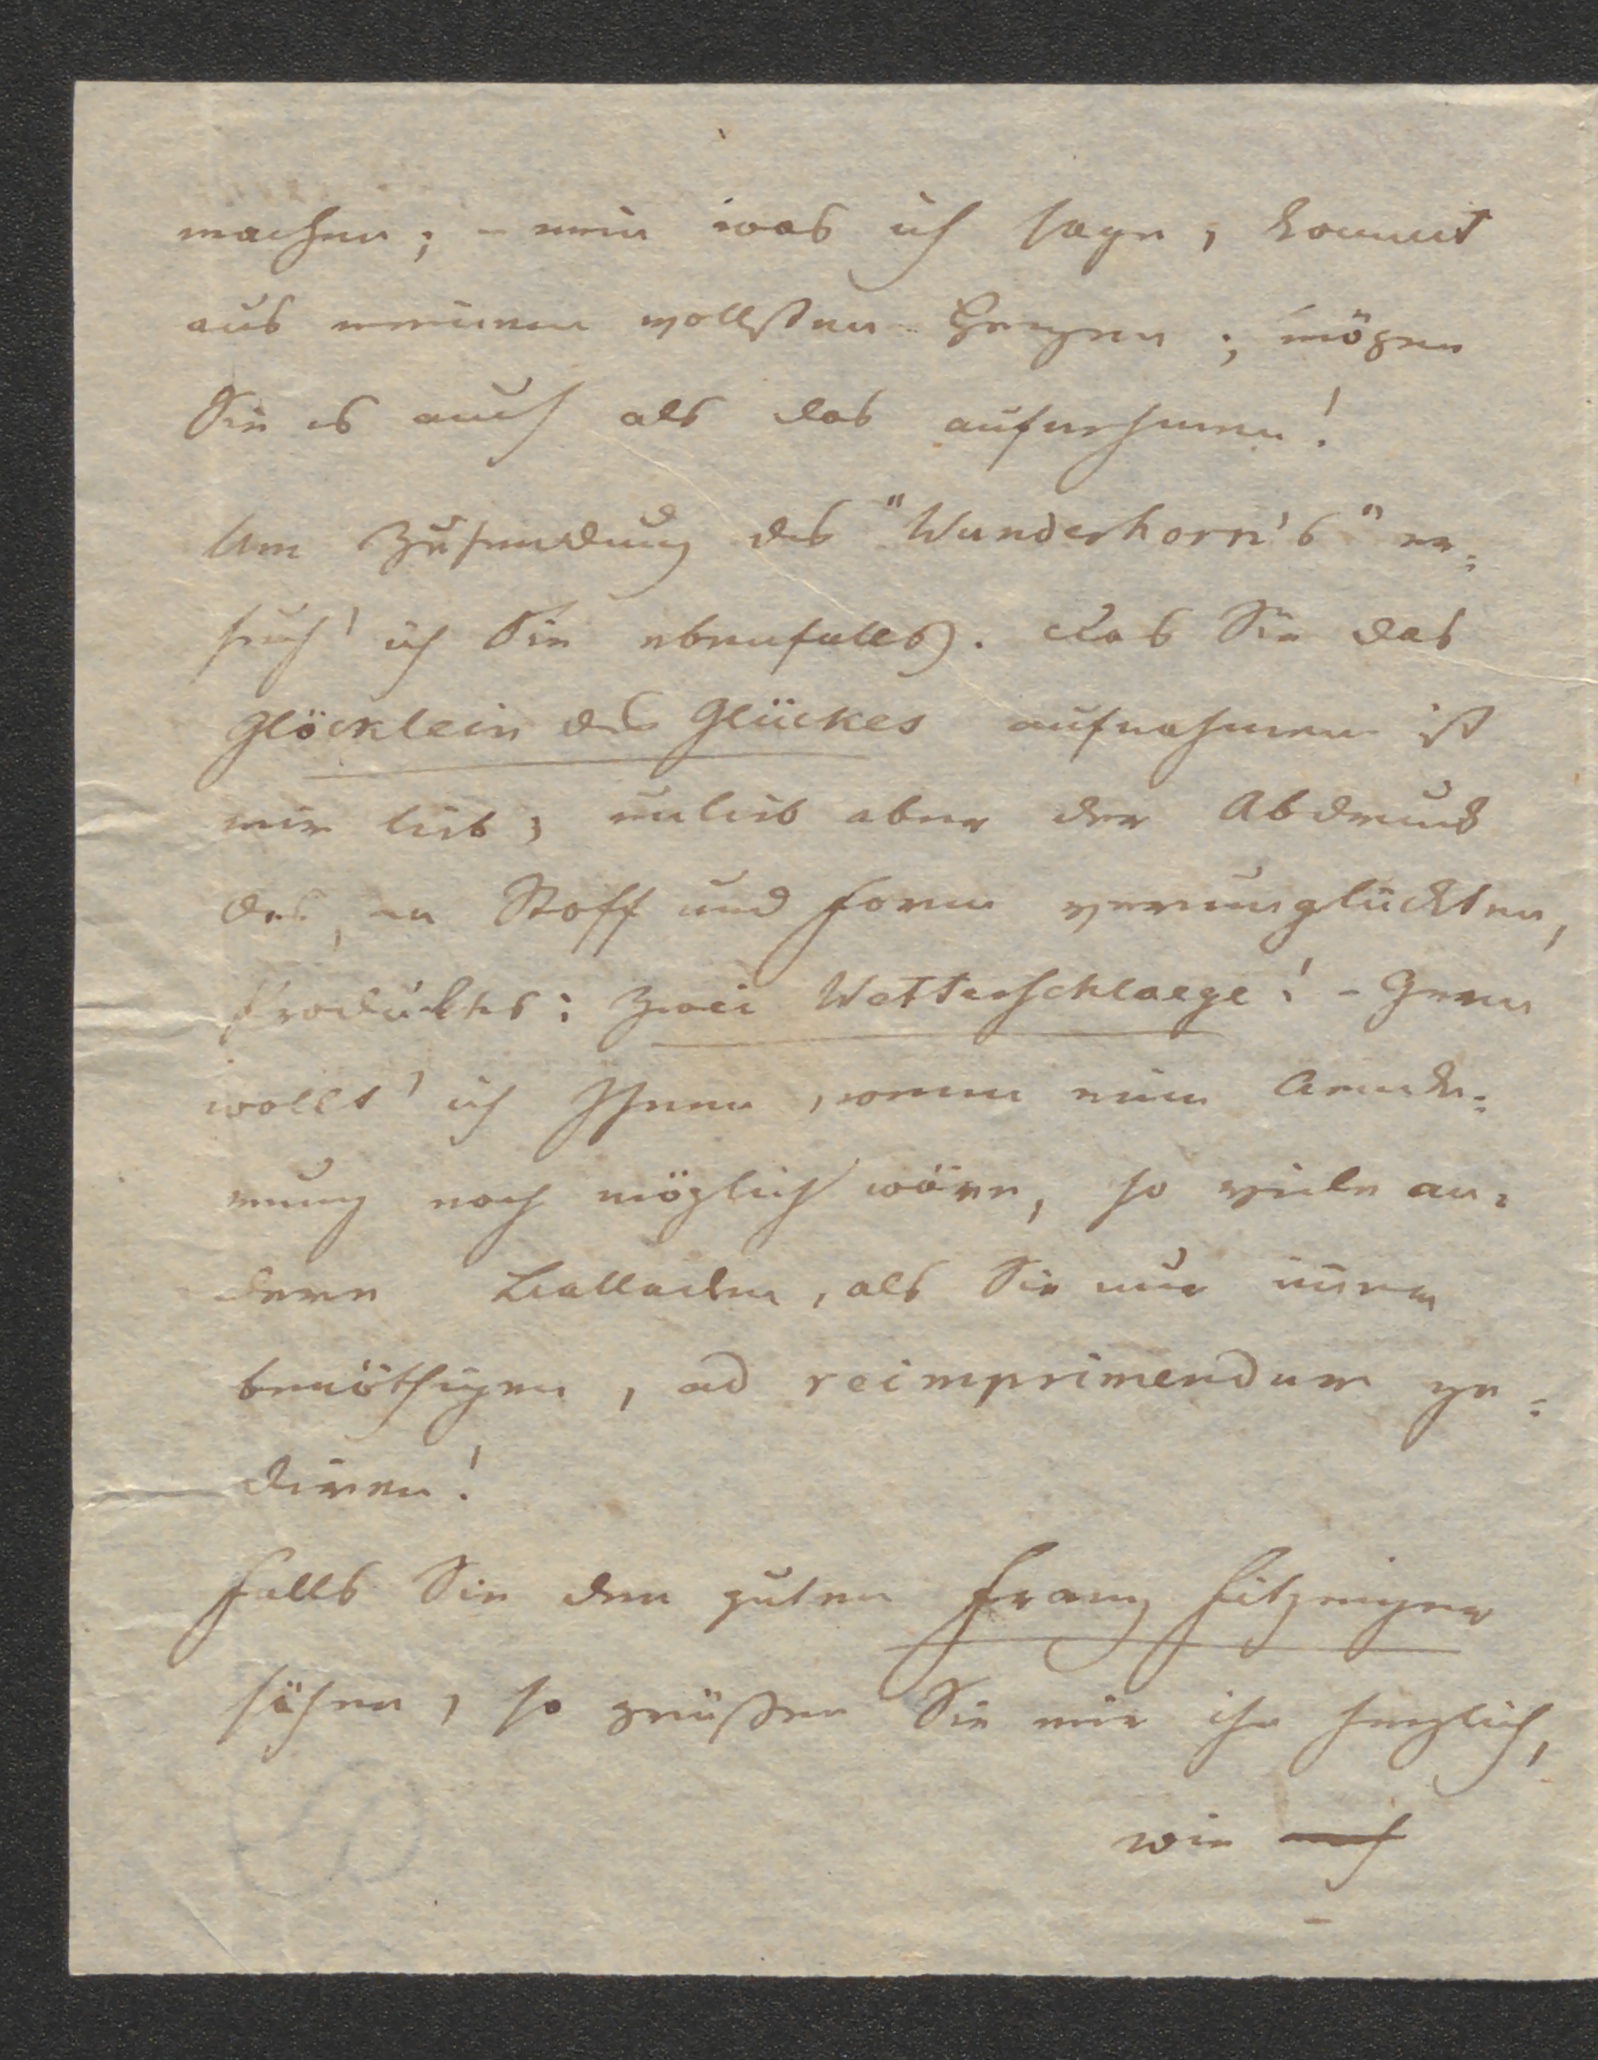 machen; – nein was ich sage, kommt
aus meinem vollsten Herzen; mögen
Sie es auch als das aufnehmen!
Um Zusendung des "Wunderhorn's" er=
such' ich Sie ebenfalls. Das Sie das
Glöcklein des Glückes aufnahmen ist
mir lieb; unlieb aber der Abdruck
des, an Stoff und Form verunglückten,
Produktes: Zwei Wetterschlaege! – Gern
wollt' ich Ihnen, wenn eine Aende=
rung noch möglich wäre, so viele an=
dere Balladen, als Sie nur immer
benöthigen, ad reimprimendum ge=
diren!
Falls Sie den guten Franz Fitzinger
sähen, so grüßen Sie mir ihn herzlich,
wie auch